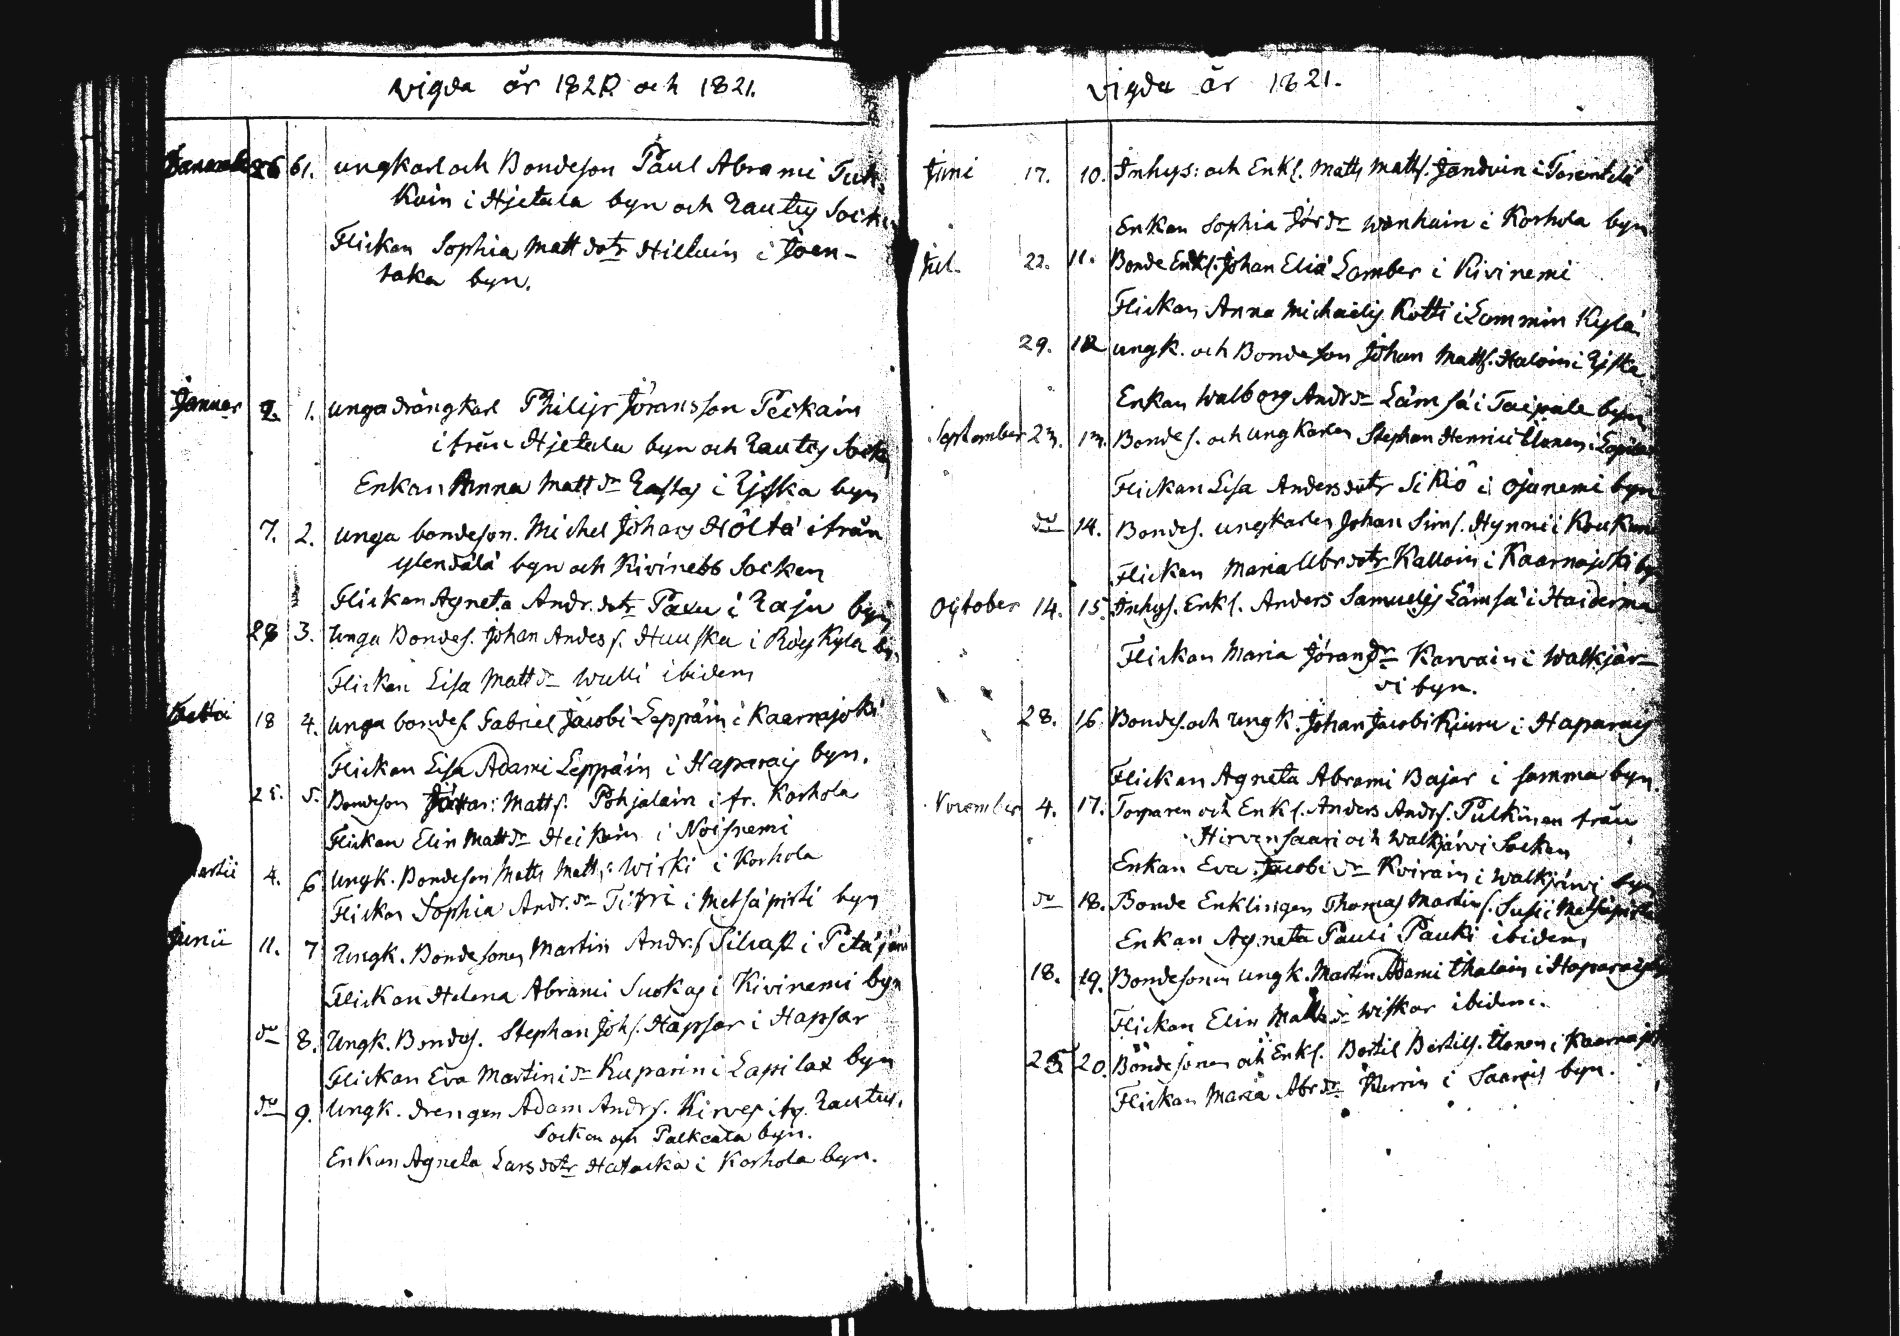 vigda år 1820 och 1821.
26 61. ungkarl och Bondeson Paul Abrami
Koin i Hjetala byn och Rautus Socken
Flickan Sophia Matt dotr Hilluin i Joen-
taka byn.
Januar 2. 1. unga drängkarl Philip Jöransson Peckain
ifrån Hjetala byn och Rautus Sock
Enkan Anna Matt dr Rastas i Riska byn
7. 2. unga bondeson. Michel Johans Höltä ifrån
ylendälä byn och Kivinebb Socken
Flickan Agneta Andr. dotr Paxu i Raju byn
28 3. Unga Bondes. Johan Anders s. Huuska i Röyskylä by
Flickan Lisa Matt dr Wulli ibidem
18 4. unga bondes. Gabriel Jacobi Leppäin i Kaarnajoki
Flickan Lisa Adami Leppäin i Haparais byn.
25. 5. Bondeson Matts. Pohjalain i fr. Korhola
Flickan Elin Matt dr Heikoin i Noisnemi
Martii 4. 6 Ungk. Bondeson Matts Matts: Wirki i Korhola
Flickan Sophia Andr. dr Titri i Metsäpirti byn
Junii 11. 7 Ungk. Bondesonen Martin Andr. s. Silvast i Petäjär
Flickan Helena Abrami Suokas i Kivinemi byn
do 8. Ungk. Bondes. Stephan Johs. Hapsar i Hapsar
Flickan Eva Martini dr Kuparin i Lapilax byn
do 9. Ungk. drengen Adam Andrs. Kirves ifr. Rautus.
Socken och Palkeala byn.
Enkan Agneta Lars dotr Hatacka i Korhola byn.
vigda år 1821.
Juni 17. 10. Inhys: och Enkl. Matts Matts. Jandvin i Terentilä
Enkan Sophia Jör dr Wanhain i Korhola byn
Jul. 22. 11. Bonde Enkl. Johan Eliä Lamber i Kivinemi
Flickan Anna Michaelis Kotti i Lammin Kylä
29. 12 ungk. och Bondeson Johan Matts. Haloin i Riska
Enkan Walborg Andr dr Lämsä i Taipale byn
September 23. 13. Bondes. och ungkarlen Stephan Henrici Ilonen i Lapilax
Flickan Lisa Anders dotr Sikiö i Ojanemi byn
do 14. Bondes. ungkarlen Johan Sims. Hynni i Koukun
Flickan Maria Abr dotr Kalloin i Kaarnajoki by
October 14. 15. Inhys. Enkl. Anders Samuelis Lämsä i Haiderma
Flickan Maria Jörans dr Karvain i Walkjär-
vi byn.
28. 16 Bondes. och ungk. Johan Jacobi Kiuru i Haparais
Flickan Agneta Abrami Bajar i samma byn.
November 4. 17. Torparen och Enkl. Anders Andrs. Pulkinen från
Hirvensaari och Walkjärvi Socken
Enkan Eva Jacobi dr Kvirain i Walkjärvi byn
do 18. Bonde Enklingen Thomas Martins. Susii Metsäpirti
Enkan Agneta Pauli Pauki ibidem
18. 19. Bondesonen ungk. Martin Adami Ihalain i Haparais
Flickan Elin Matts dr Wiskar ibidem.
25 20. Bondesonen och Enkl. Bertil Bertils. Ilonen i Kaarnajo
Flickan Maria Abr dr i Saarois byn.